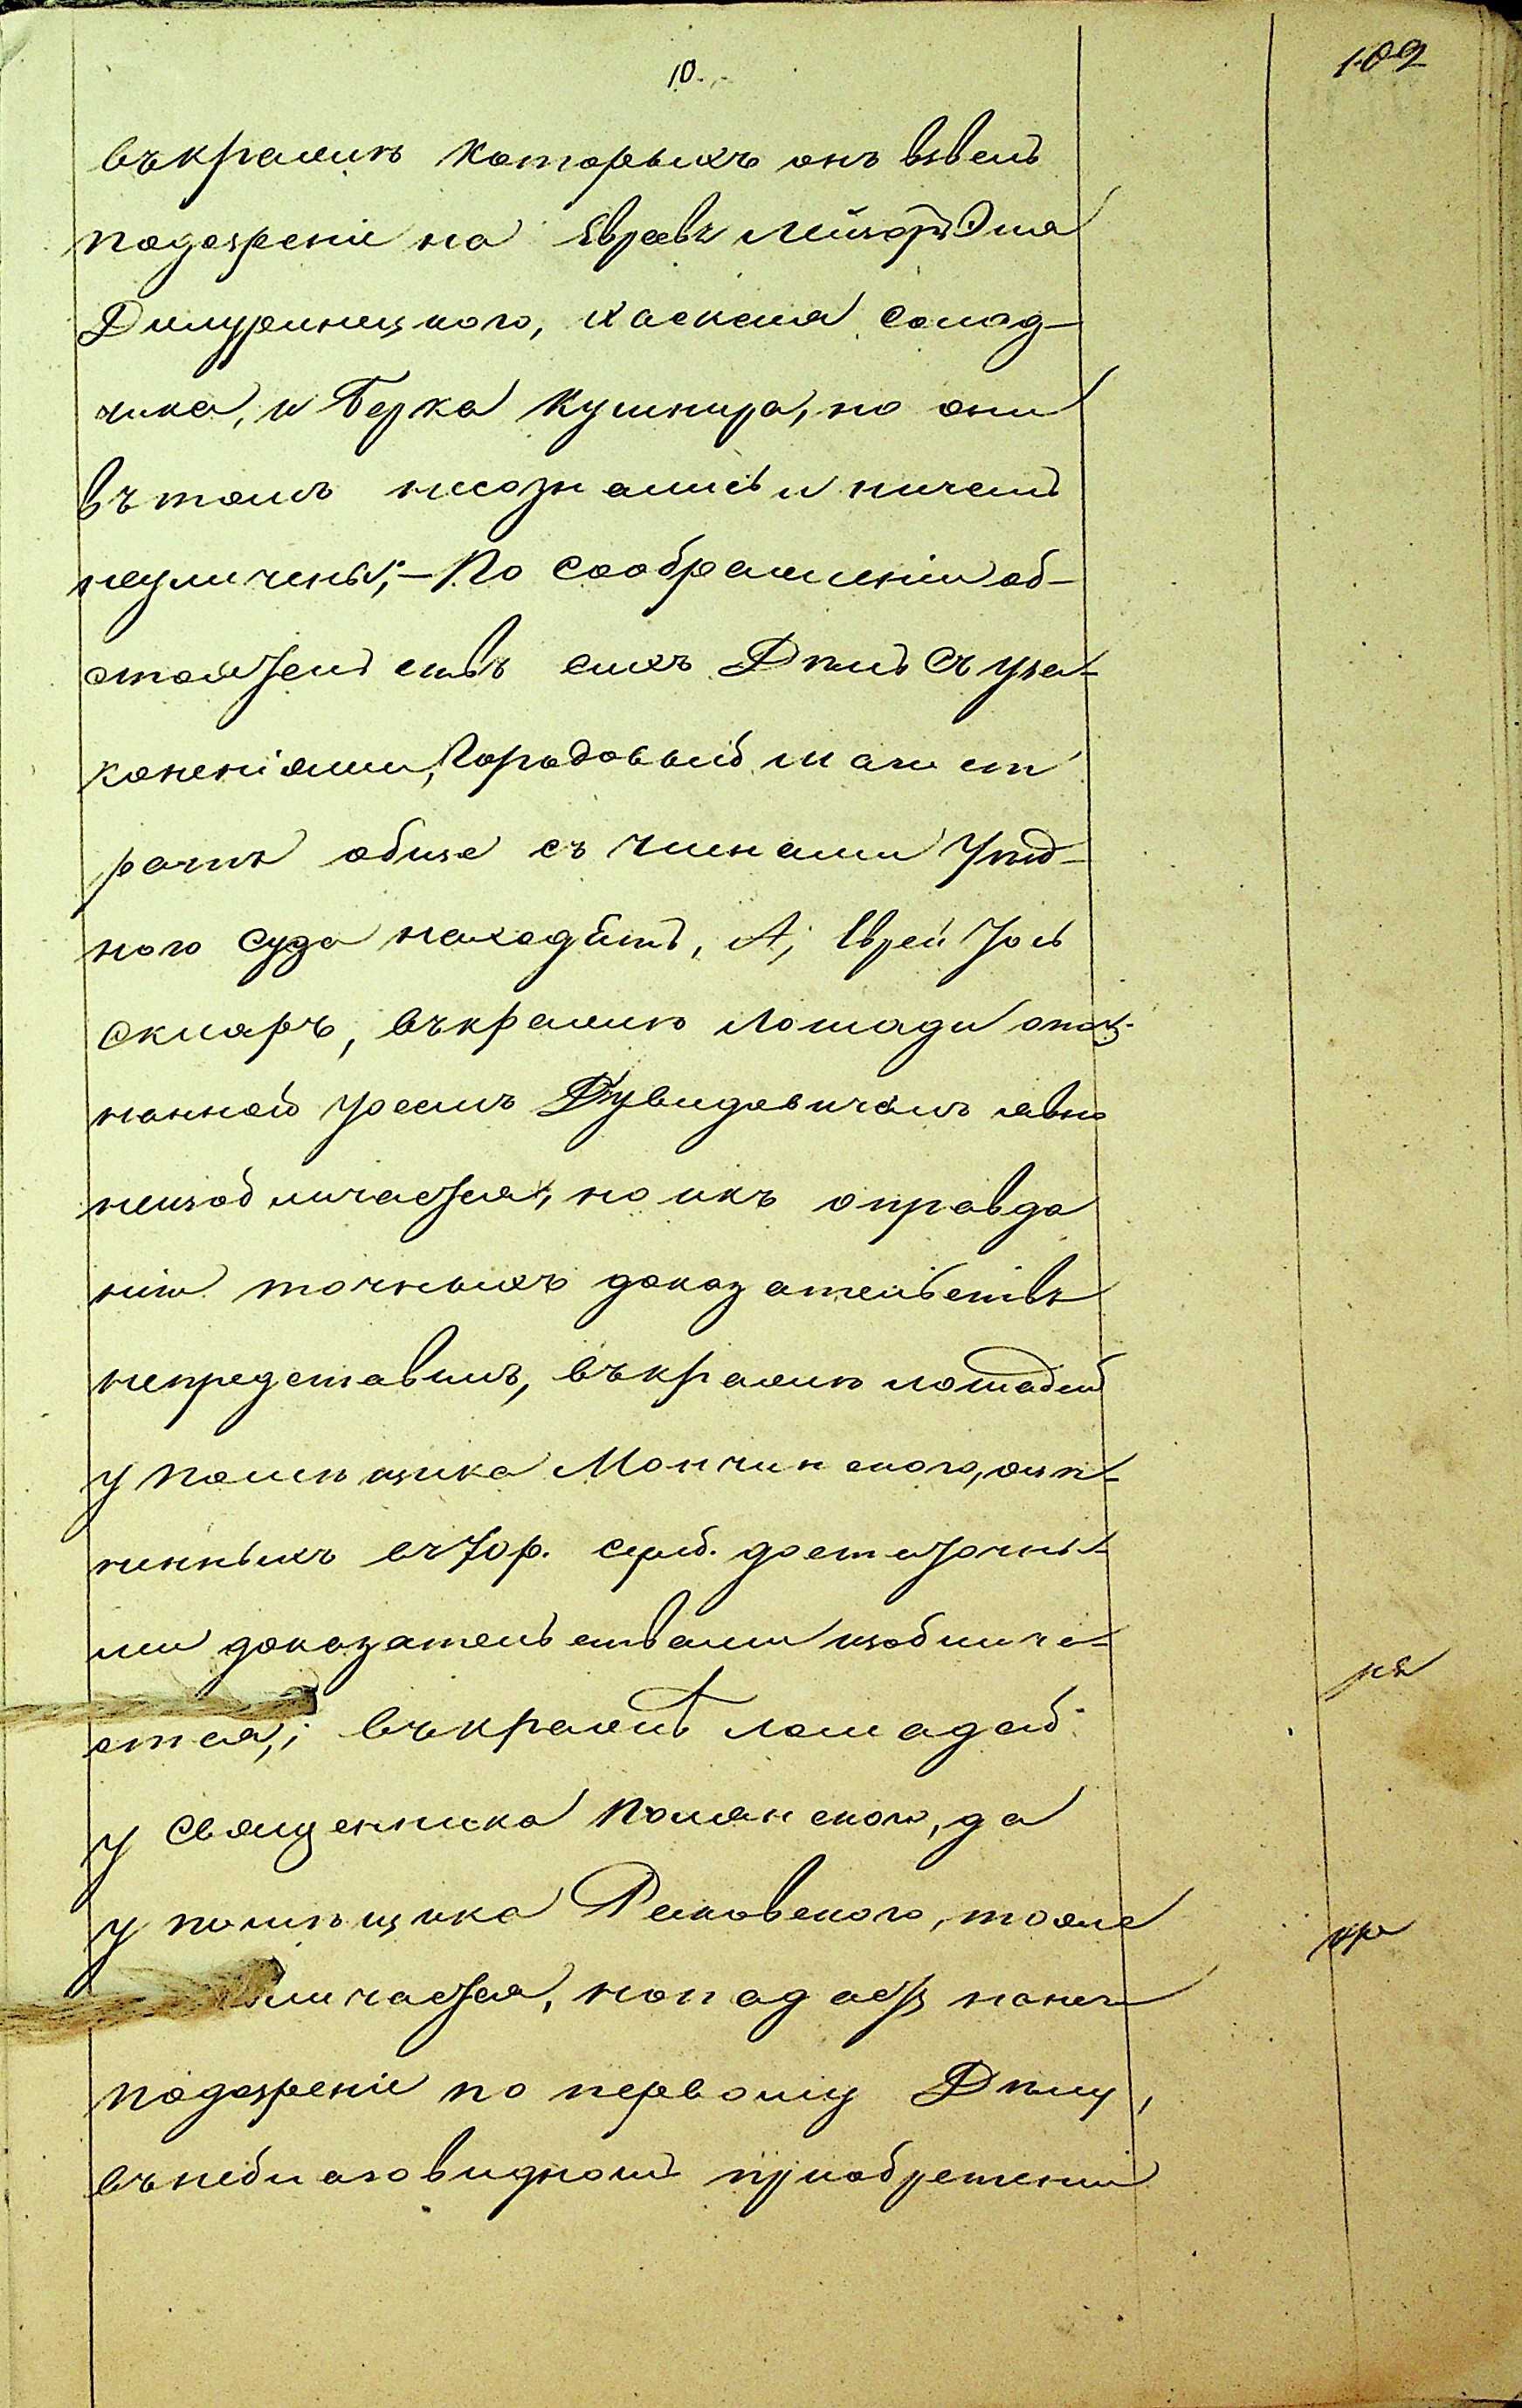 10.
102
въкражи которыхъ онъ взвелъ
подозреніе на Евреевъ Лейзора Эля
Джуринецкого, Хаскеля солод-
чика, и Берка Кушнира, но они
въ томъ несознались и ничемъ
неуличены; — По соображеніи об-
стоятельствъ сихъ Дѣлъ съ уза-
конениями, Городовый магист
ратъ обще съ членами Уѣзд-
ного суда находитъ, А; Еврей Іось
Скляръ, въкражи лошади опоз-
нанной Іосемъ Дувидовичемъ явно
неизобличается, но икъ оправда
нію точныхъ доказательствъ
непредставилъ, въкражи лошадей
у помѣщика Мончинского, оцѣ-
ненныхъ въ 70 р. сереб. достаточны-
ми доказательствами изоблича-
ется,; въкражѣ лошадей
у священника Полянского, да
у помѣщика Раковского, тоже
личается, но падаетъ нанего
подозреніе по первому Дѣлу,
въ неблаговидномъ приобретении